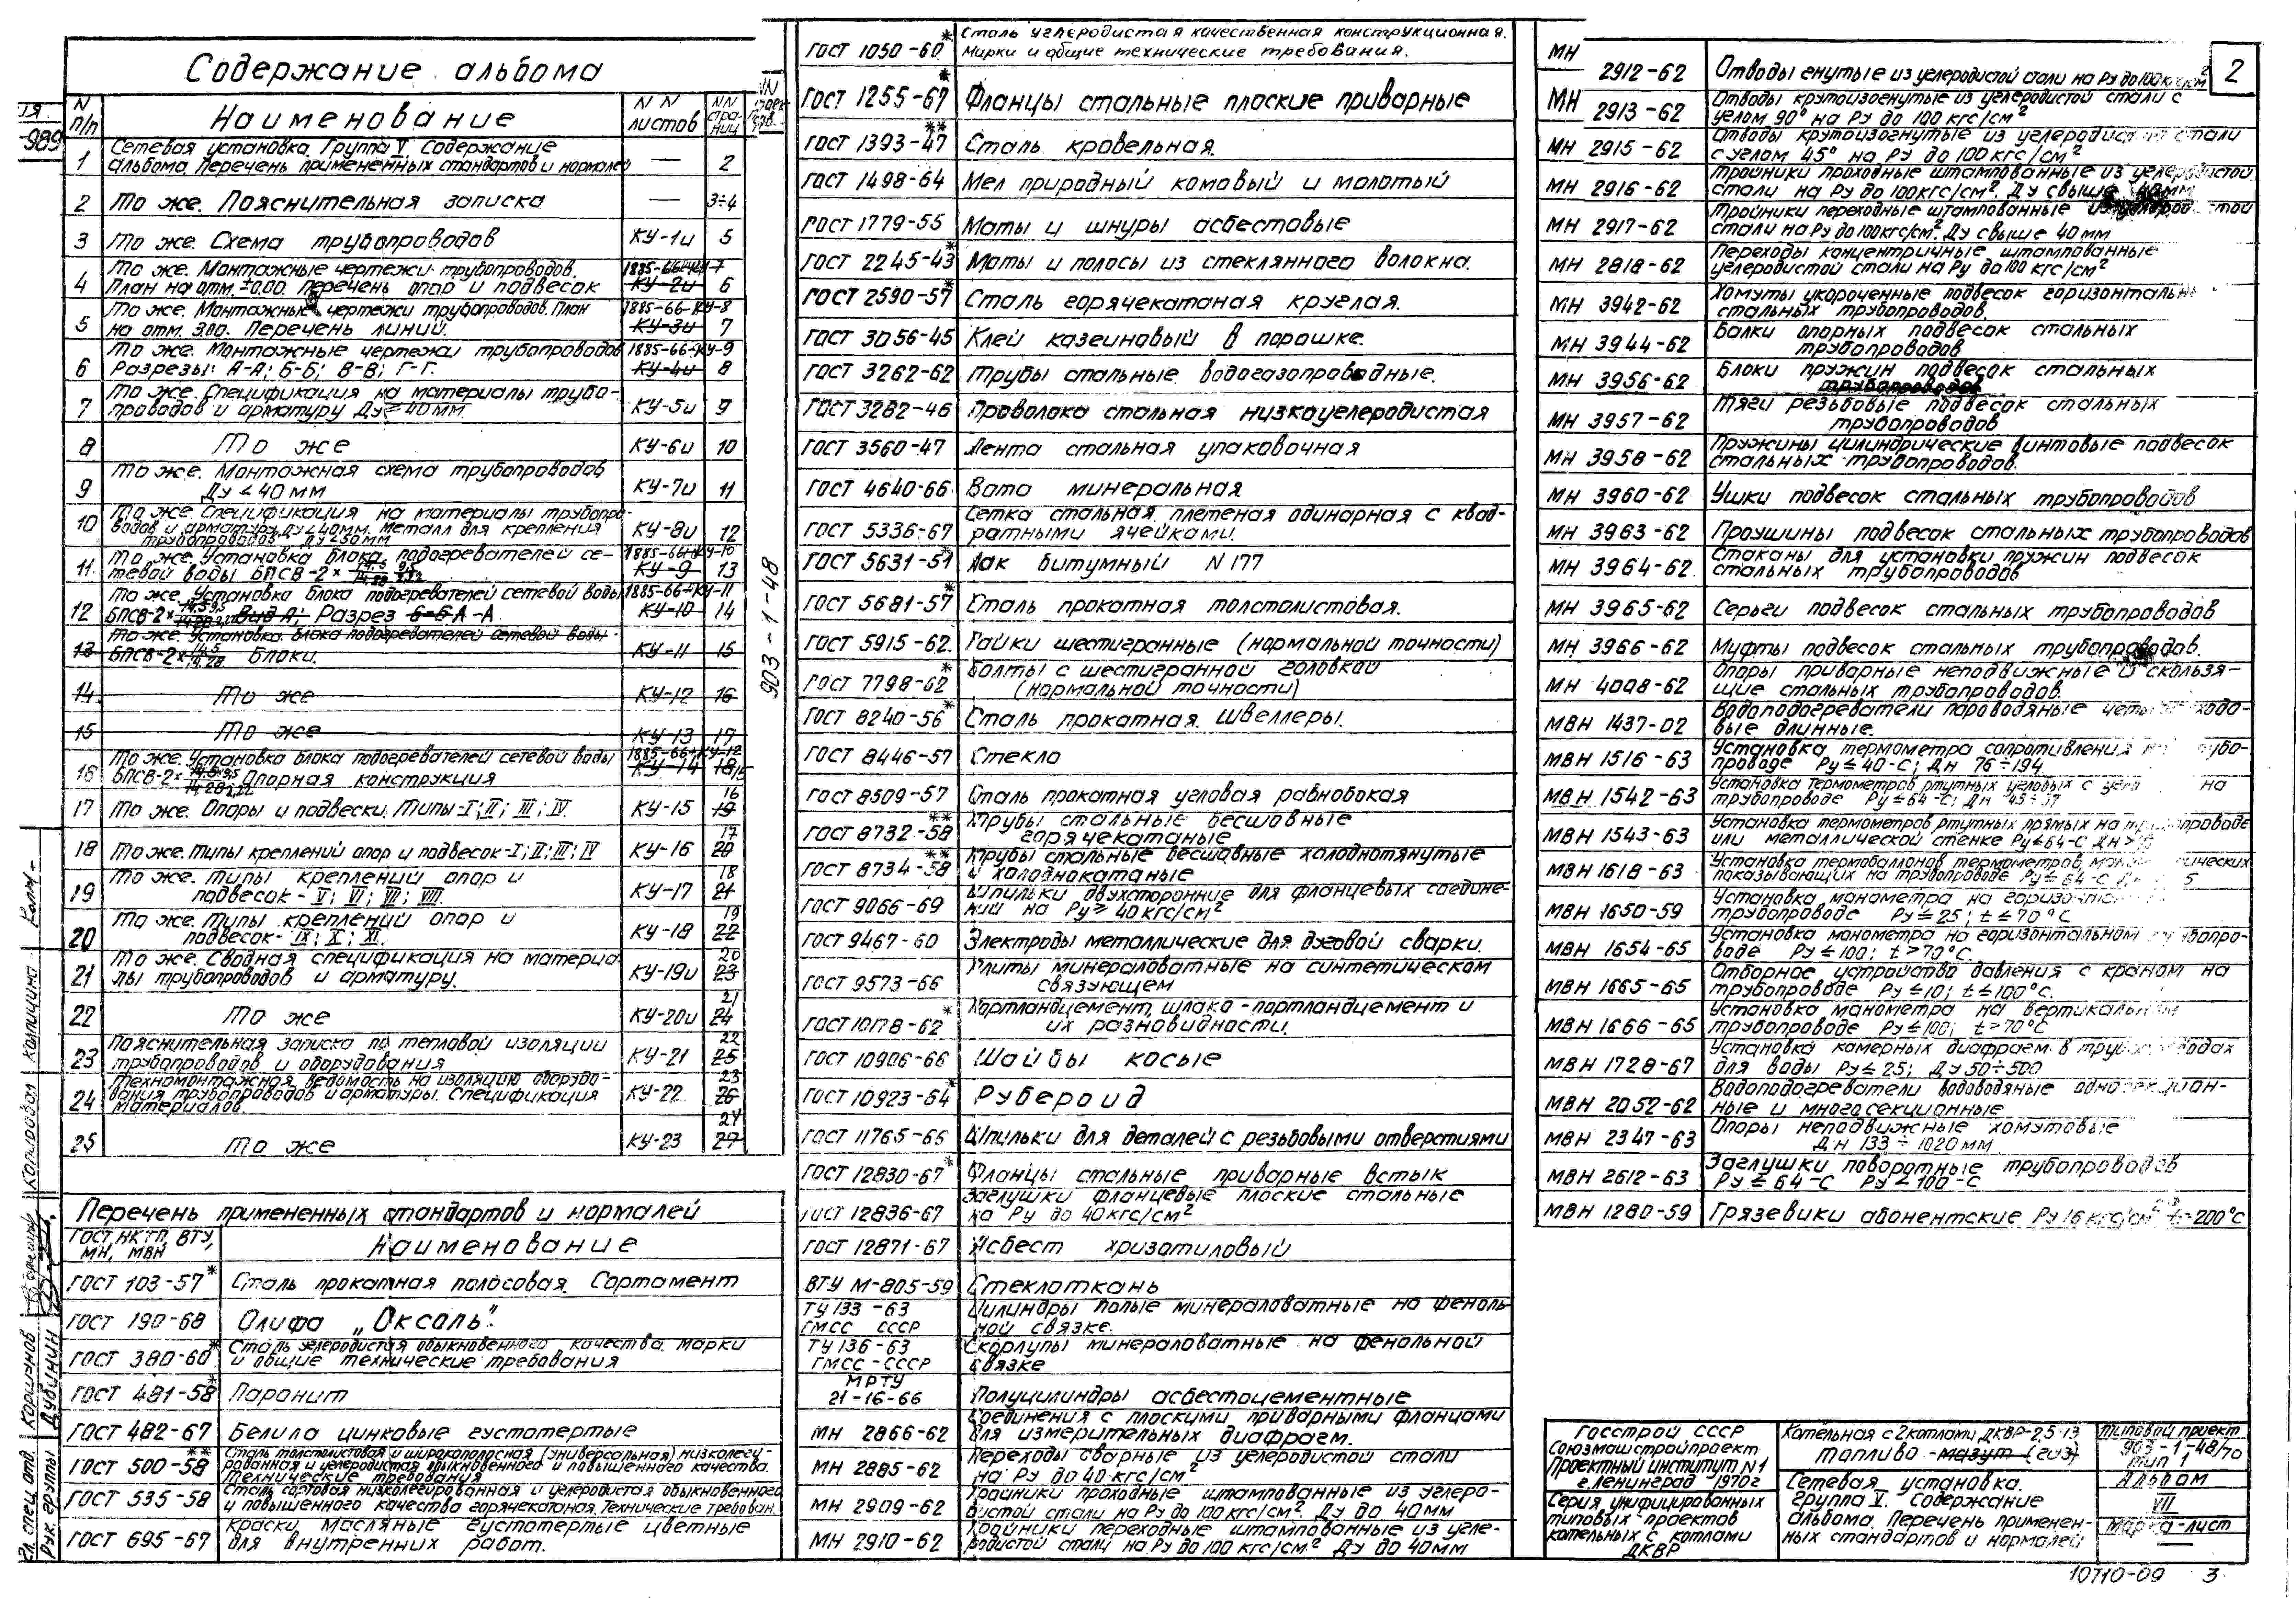 Содержание альбома
N п/п Наименование NN листов NN стра- ниц
1 Сетевая установка. Группа V. Содержание
альбома. Перечень примененных стандартов и нормалей — 2
2 То же. Пояснительная записка — 3÷4
3 То же. Схема трубопроводов КУ-1и 5
4 То же. Монтажные чертежи трубопроводов. 1885-66-КУ-7
План на отм. ±0.00. Перечень опор и подвесок КУ-2и 6
5 То же. Монтажные чертежи трубопроводов. План 1885-66-КУ-8
на отм. 3.00. Перечень линий. КУ-3и 7
6 То же. Монтажные чертежи трубопроводов 1885-66-КУ-9
Разрезы: А-А; Б-Б; В-В; Г-Г. КУ-4и 8
7 То же. Спецификация на материалы трубо-
проводов и арматуру Ду ≥ 40мм КУ-5и 9
8 То же КУ-6и 10
9 То же. Монтажная схема трубопроводов
Ду < 40мм КУ-7и 11
10 То же. Спецификация на материалы трубопро-
водов и арматуру Ду ≤ 40мм. Металл для крепления
трубопроводов Ду ≤ 50мм КУ-8и 12
11 То же. Установка блока подогревателей се- 1885-66-КУ-10
тевой воды БПСВ-2× КУ-9 13
12 То же. Установка блока подогревателей сетевой воды 1885-66-КУ-11
БПСВ-2× Вид А; Разрез Б-Б А-А КУ-10 14
13 То же. Установка блока подогревателей сетевой воды
БПСВ-2× 14,5/14,28 Блоки. КУ-11 15
14 То же КУ-12 16
15 То же КУ-13 17
16 То же. Установка блока подогревателей сетевой воды 1885-66-КУ-12
БПСВ-2× Опорная конструкция КУ-14 18 15
17 То же. Опоры и подвески. Типы-I; II; III; IV. КУ-15 16 19
18 То же. Типы креплений опор и подвесок-I; II; III; IV КУ-16 17 20
19 То же. Типы креплений опор и
подвесок - V; VI; VII; VIII. КУ-17 18 21
20 То же. Типы креплений опор и
подвесок- IX; X; XI. КУ-18 19 22
21 То же. Сводная спецификация на материа-
лы трубопроводов и арматуру. КУ-19и 20 23
22 То же КУ-20и 21 24
23 Пояснительная записка по тепловой изоляции
трубопроводов и оборудования КУ-21 22 25
24 Техномонтажная ведомость на изоляцию оборудо-
вания трубопроводов и арматуры. Спецификация
материалов КУ-22 23 26
25 То же КУ-23 24 27
Перечень примененных стандартов и нормалей
ГОСТ, НКТП, ВТУ, МН, МВН Наименование
ГОСТ 103-57* Сталь прокатная полосовая. Сортамент
ГОСТ 190-68 Олифа „Оксоль".
ГОСТ 380-60* Сталь углеродистая обыкновенного качества. Марки
и общие технические требования
ГОСТ 481-58* Паронит
ГОСТ 482-67 Белила цинковые густотертые
ГОСТ 500-58** Сталь толстолистовая и широкополосная (универсальная) низколеги-
рованная и углеродистая обыкновенного и повышенного качества.
Технические требования
ГОСТ 535-58 Сталь сортовая низколегированная и углеродистая обыкновенного
и повышенного качества горячекатаная. Технические требован.
ГОСТ 695-67 Краски масляные густотертые цветные
для внутренних работ.
903-1-48
ГОСТ 1050-60* Сталь углеродистая качественная конструкционная.
Марки и общие технические требования.
ГОСТ 1255-67* Фланцы стальные плоские приварные
ГОСТ 1393-47** Сталь кровельная.
ГОСТ 1498-64 Мел природный комовый и молотый
ГОСТ 1779-55 Маты и шнуры асбестовые
ГОСТ 2245-43* Маты и полосы из стеклянного волокна.
ГОСТ 2590-57* Сталь горячекатаная круглая.
ГОСТ 3056-45 Клей казеиновый в порошке.
ГОСТ 3262-62 Трубы стальные водогазопроводные.
ГОСТ 3282-46 Проволока стальная низкоуглеродистая
ГОСТ 3560-47 Лента стальная упаковочная
ГОСТ 4640-66 Вата минеральная
ГОСТ 5336-67 Сетка стальная плетеная одинарная с квад-
ратными ячейками.
ГОСТ 5631-51* Лак битумный N 177
ГОСТ 5681-57* Сталь прокатная толстолистовая.
ГОСТ 5915-62. Гайки шестигранные (нормальной точности)
ГОСТ 7798-62* Болты с шестигранной головкой
(нормальной точности)
ГОСТ 8240-56* Сталь прокатная. Швеллеры.
ГОСТ 8446-57 Стекло
ГОСТ 8509-57 Сталь прокатная угловая равнобокая
ГОСТ 8732-58** Трубы стальные бесшовные
горячекатаные
ГОСТ 8734-58** Трубы стальные бесшовные холоднотянутые
и холоднокатаные
ГОСТ 9066-69 Шпильки двухсторонние для фланцевых соедине-
ний на Ру ≥ 40 кгс/см²
ГОСТ 9467-60 Электроды металлические для дуговой сварки.
ГОСТ 9573-66 Плиты минераловатные на синтетическом
связующем
ГОСТ 10178-62* Портландцемент, шлако-портландцемент и
их разновидности.
ГОСТ 10906-66 Шайбы косые
ГОСТ 10923-64* Рубероид
ГОСТ 11765-66 Шпильки для деталей с резьбовыми отверстиями
ГОСТ 12830-67* Фланцы стальные приварные встык
ГОСТ 12836-67 Заглушки фланцевые плоские стальные
на Ру до 40кгс/см²
ГОСТ 12871-67 Асбест хризотиловый
ВТУ М-805-59 Стеклоткань
ТУ 133-63 ГМСС СССР Цилиндры полые минераловатные на феноль-
ной связке.
ТУ 136-63 ГМСС-СССР Скорлупы минераловатные на фенольной
связке
МРТУ 21-16-66 Полуцилиндры асбестоцементные
МН 2866-62 Соединения с плоскими приварными фланцами
для измерительных диафрагм.
МН 2885-62 Переходы сварные из углеродистой стали
на Ру до 40 кгс/см²
МН 2909-62 Тройники проходные штампованные из углеро-
дистой стали на Ру до 100 кгс/см². Ду до 40мм
МН 2910-62 Тройники переходные штампованные из угле-
родистой стали на Ру до 100 кгс/см² Ду до 40мм
2
МН 2912-62 Отводы гнутые из углеродистой стали на Ру до 100 кгс/см²
МН 2913-62 Отводы крутоизогнутые из углеродистой стали с
углом 90° на Ру до 100 кгс/см²
МН 2915-62 Отводы крутоизогнутые из углеродистой стали
с углом 45° на Ру до 100 кгс/см²
МН 2916-62 Тройники проходные штампованные из углеродистой
стали на Ру до 100кгс/см². Ду свыше 40мм
МН 2917-62 Тройники переходные штампованные из углеродистой
стали на Ру до 100кгс/см². Ду свыше 40мм
МН 2818-62 Переходы концентричные штампованные
углеродистой стали на Ру до 100 кгс/см²
МН 3942-62 Хомуты укороченные подвесок горизонтальн
стальных трубопроводов.
МН 3944-62 Балки опорных подвесок стальных
трубопроводов
МН 3956-62 Блоки пружин подвесок стальных
трубопроводов
МН 3957-62 Тяги резьбовые подвесок стальных
трубопроводов
МН 3958-62 Пружины цилиндрические винтовые подвесок
стальных трубопроводов.
МН 3960-62 Ушки подвесок стальных трубопроводов
МН 3963-62 Проушины подвесок стальных трубопроводов
МН 3964-62 Стаканы для установки пружин подвесок
стальных трубопроводов
МН 3965-62 Серьги подвесок стальных трубопроводов
МН 3966-62 Муфты подвесок стальных трубопроводов.
МН 4008-62 Опоры приварные неподвижные и скользя-
щие стальных трубопроводов.
МВН 1437-02 Водоподогреватели пароводяные
длинные.
МВН 1516-63 Установка термометра сопротивления на трубо-
проводе Ру ≤ 40-С; Дн 76÷194
МВН 1542-63 Установка термометров ртутных угловых с на
трубопроводе Ру ≤ 64-С; Дн 45÷57
МВН 1543-63 Установка термометров ртутных прямых на трубопроводе
или металлической стенке Ру ≤ 64-С
МВН 1618-63 Установка термобаллонов термометров
показывающих на трубопроводе Ру ≤ 64-С
МВН 1650-59 Установка манометра на
трубопроводе Ру ≤ 25; t ≤ 70°С
МВН 1654-65 Установка манометра на горизонтальном трубопро-
воде Ру ≤ 100; t > 70°С.
МВН 1665-65 Отборное устройство давления с краном на
трубопроводе Ру ≤ 10; t ≤ 100°С.
МВН 1666-65 Установка манометра на вертикальном
трубопроводе Ру ≤ 100; t > 70°С
МВН 1728-67 Установка камерных диафрагм в трубопроводах
для воды Ру ≤ 25; Ду 50÷500
МВН 2052-62 Водоподогреватели водоводяные односекцион-
ные и многосекционные
МВН 2347-63 Опоры неподвижные хомутовые
Дн 133 ÷ 1020 мм
МВН 2612-63 Заглушки поворотные трубопроводов
Ру ≤ 64-С Ру 100-С
МВН 1280-59 Грязевики абонентские Ру 16 кгс/см² t=200°С
ГОССТРОЙ СССР
Союзмашстройпроект
Проектный институт N1
г. Ленинград 1970г
Серия унифицированных
типовых проектов
котельных с котлами
ДКВР
Котельная с 2 котлами ДКВР-2,5-13
Топливо - мазут (газ)
Сетевая установка.
Группа V. Содержание
альбома. Перечень применен-
ных стандартов и нормалей
Типовой проект
903-1-48/70
тип 1
Альбом
VII
Марка-лист
—
Гл. спец. отд. Коршунов
Рук. группы Дубинин
Копировал Копицина
10710-09 3